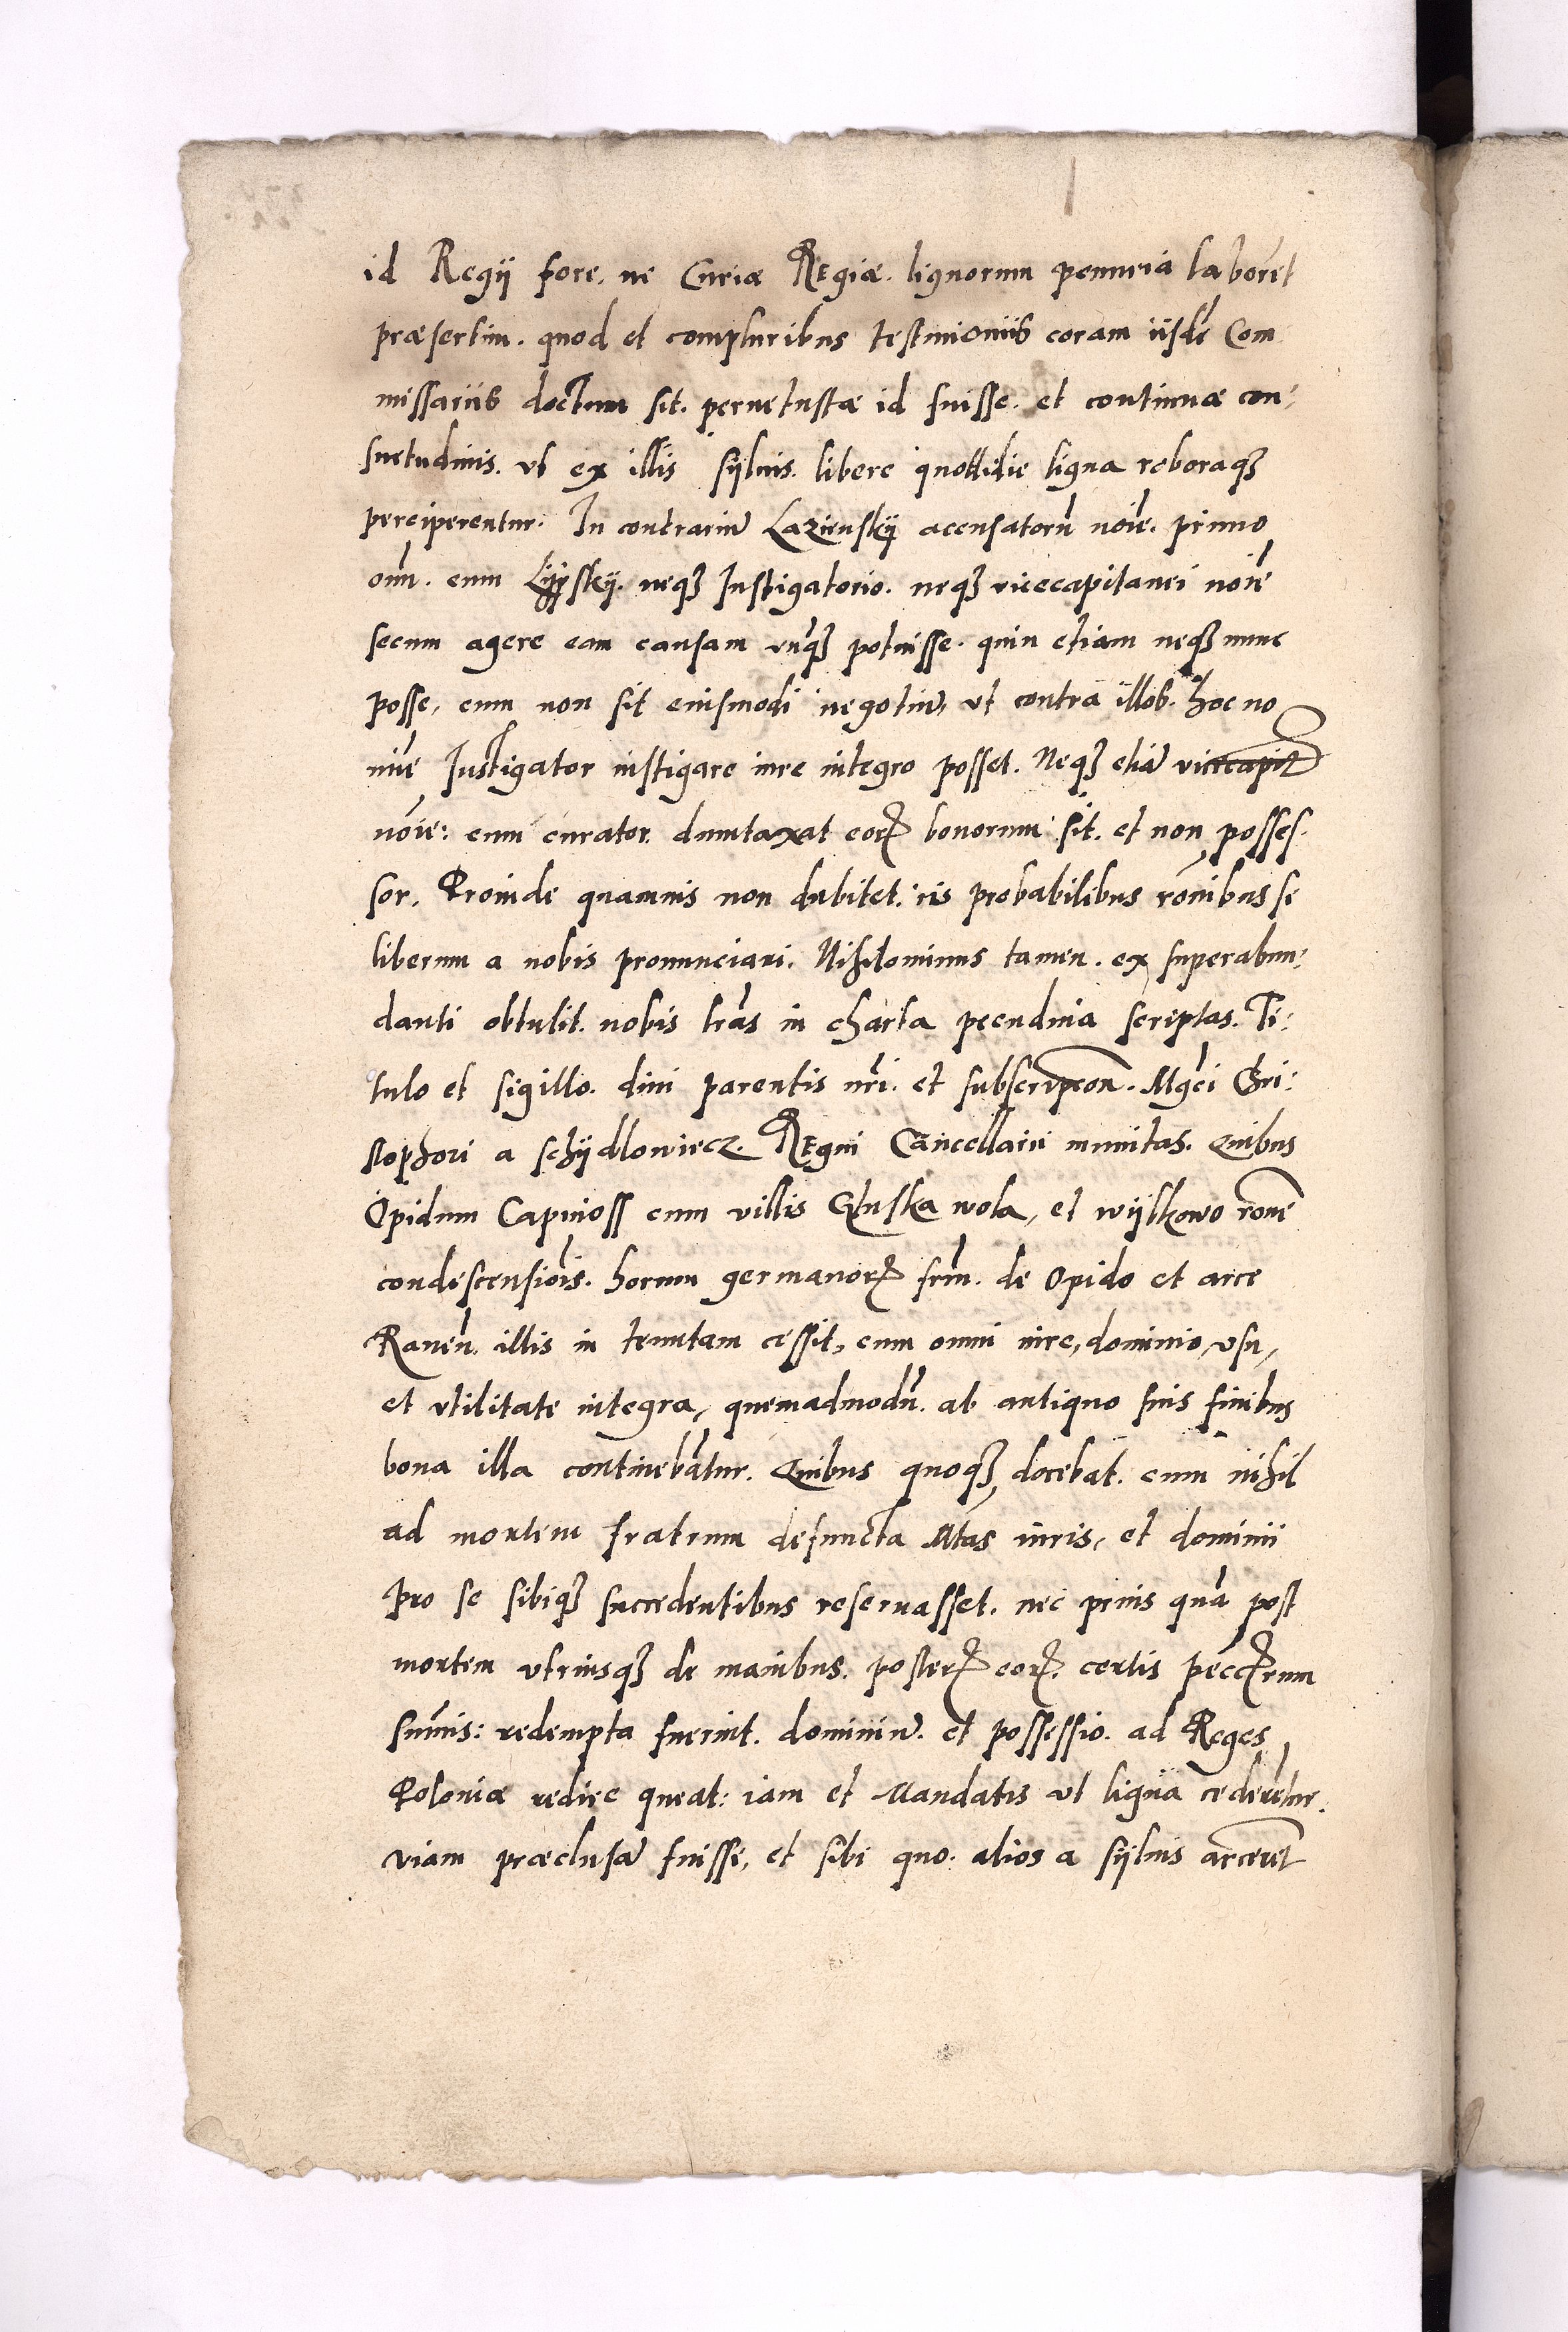 id Regij fore, ne Curiæ Regiæ. lignorum penuria laborēt
præsertim. quod et compluribus testimoniis coram iisdē Com
missariis doctum sit. peruetustæ id fuisse. et continuæ con-
suetudinis. vt ex illis syluis. libere quottidie ligna roboraq̨
perciperentur. In contrariū Lazienskij accusatorū noīe. primo
om̄. eum Lypskij. neq̨ Instigatorio. neq̨ vicecapitanei noīe
secum agere eam causam vnq̨ potuisse. quin etiam neq̨ nunc
posse, cum non sit eiusmodi negotiū, vt contra illos. hoc no
mīe Instigator instigare iure integro posset. Neq̨ etiā vicecapit
noīe: cum curator duntaxat eorꝝ bonorum sit. et non posses-
sor. Proinde quamuis non dubitet. iis probabilibus rōnibus se
liberum a nobis pronunciari. Nihilominus tamen. ex superabun-
danti obtulit. nobis lr̄as in charta pecudinia scriptas. Ti-
tulo et sigillo. diui parentis nr̄i. et subscripcōn. Mgci Chri-
stophori a schydlowiecz. Regni Cancellarii munitas. Quibus
Opidum Capinoss cum villis Gluska wola, et wijlkowo rōne
condescensiōis. horum germanorꝝ frm̄. de Opido et arce
Raven̄. illis in tenutam cessit, cum omni iure, dominio, vsu,
et vtilitate integra, quemadmodū. ab antiquo suis finibus
bona illa continebātur. Quibus quoq̨ docebat. cum nihil
ad mortem fratrum defuncta Mtas iuris, et dominii
pro se sibiq̨ succedentibus reseruasset. nec prius quā post
mortem vtriusq̨ de manibus. posterꝝ eorꝝ. certis
sūmis: redempta fuerint. dominiū. et possessio. ad Reges
Poloniæ redire queat: iam et Mandatis vt ligna cederētur.
viam præclusā fuisse, et sibi quo. alios a syluis arcerēt